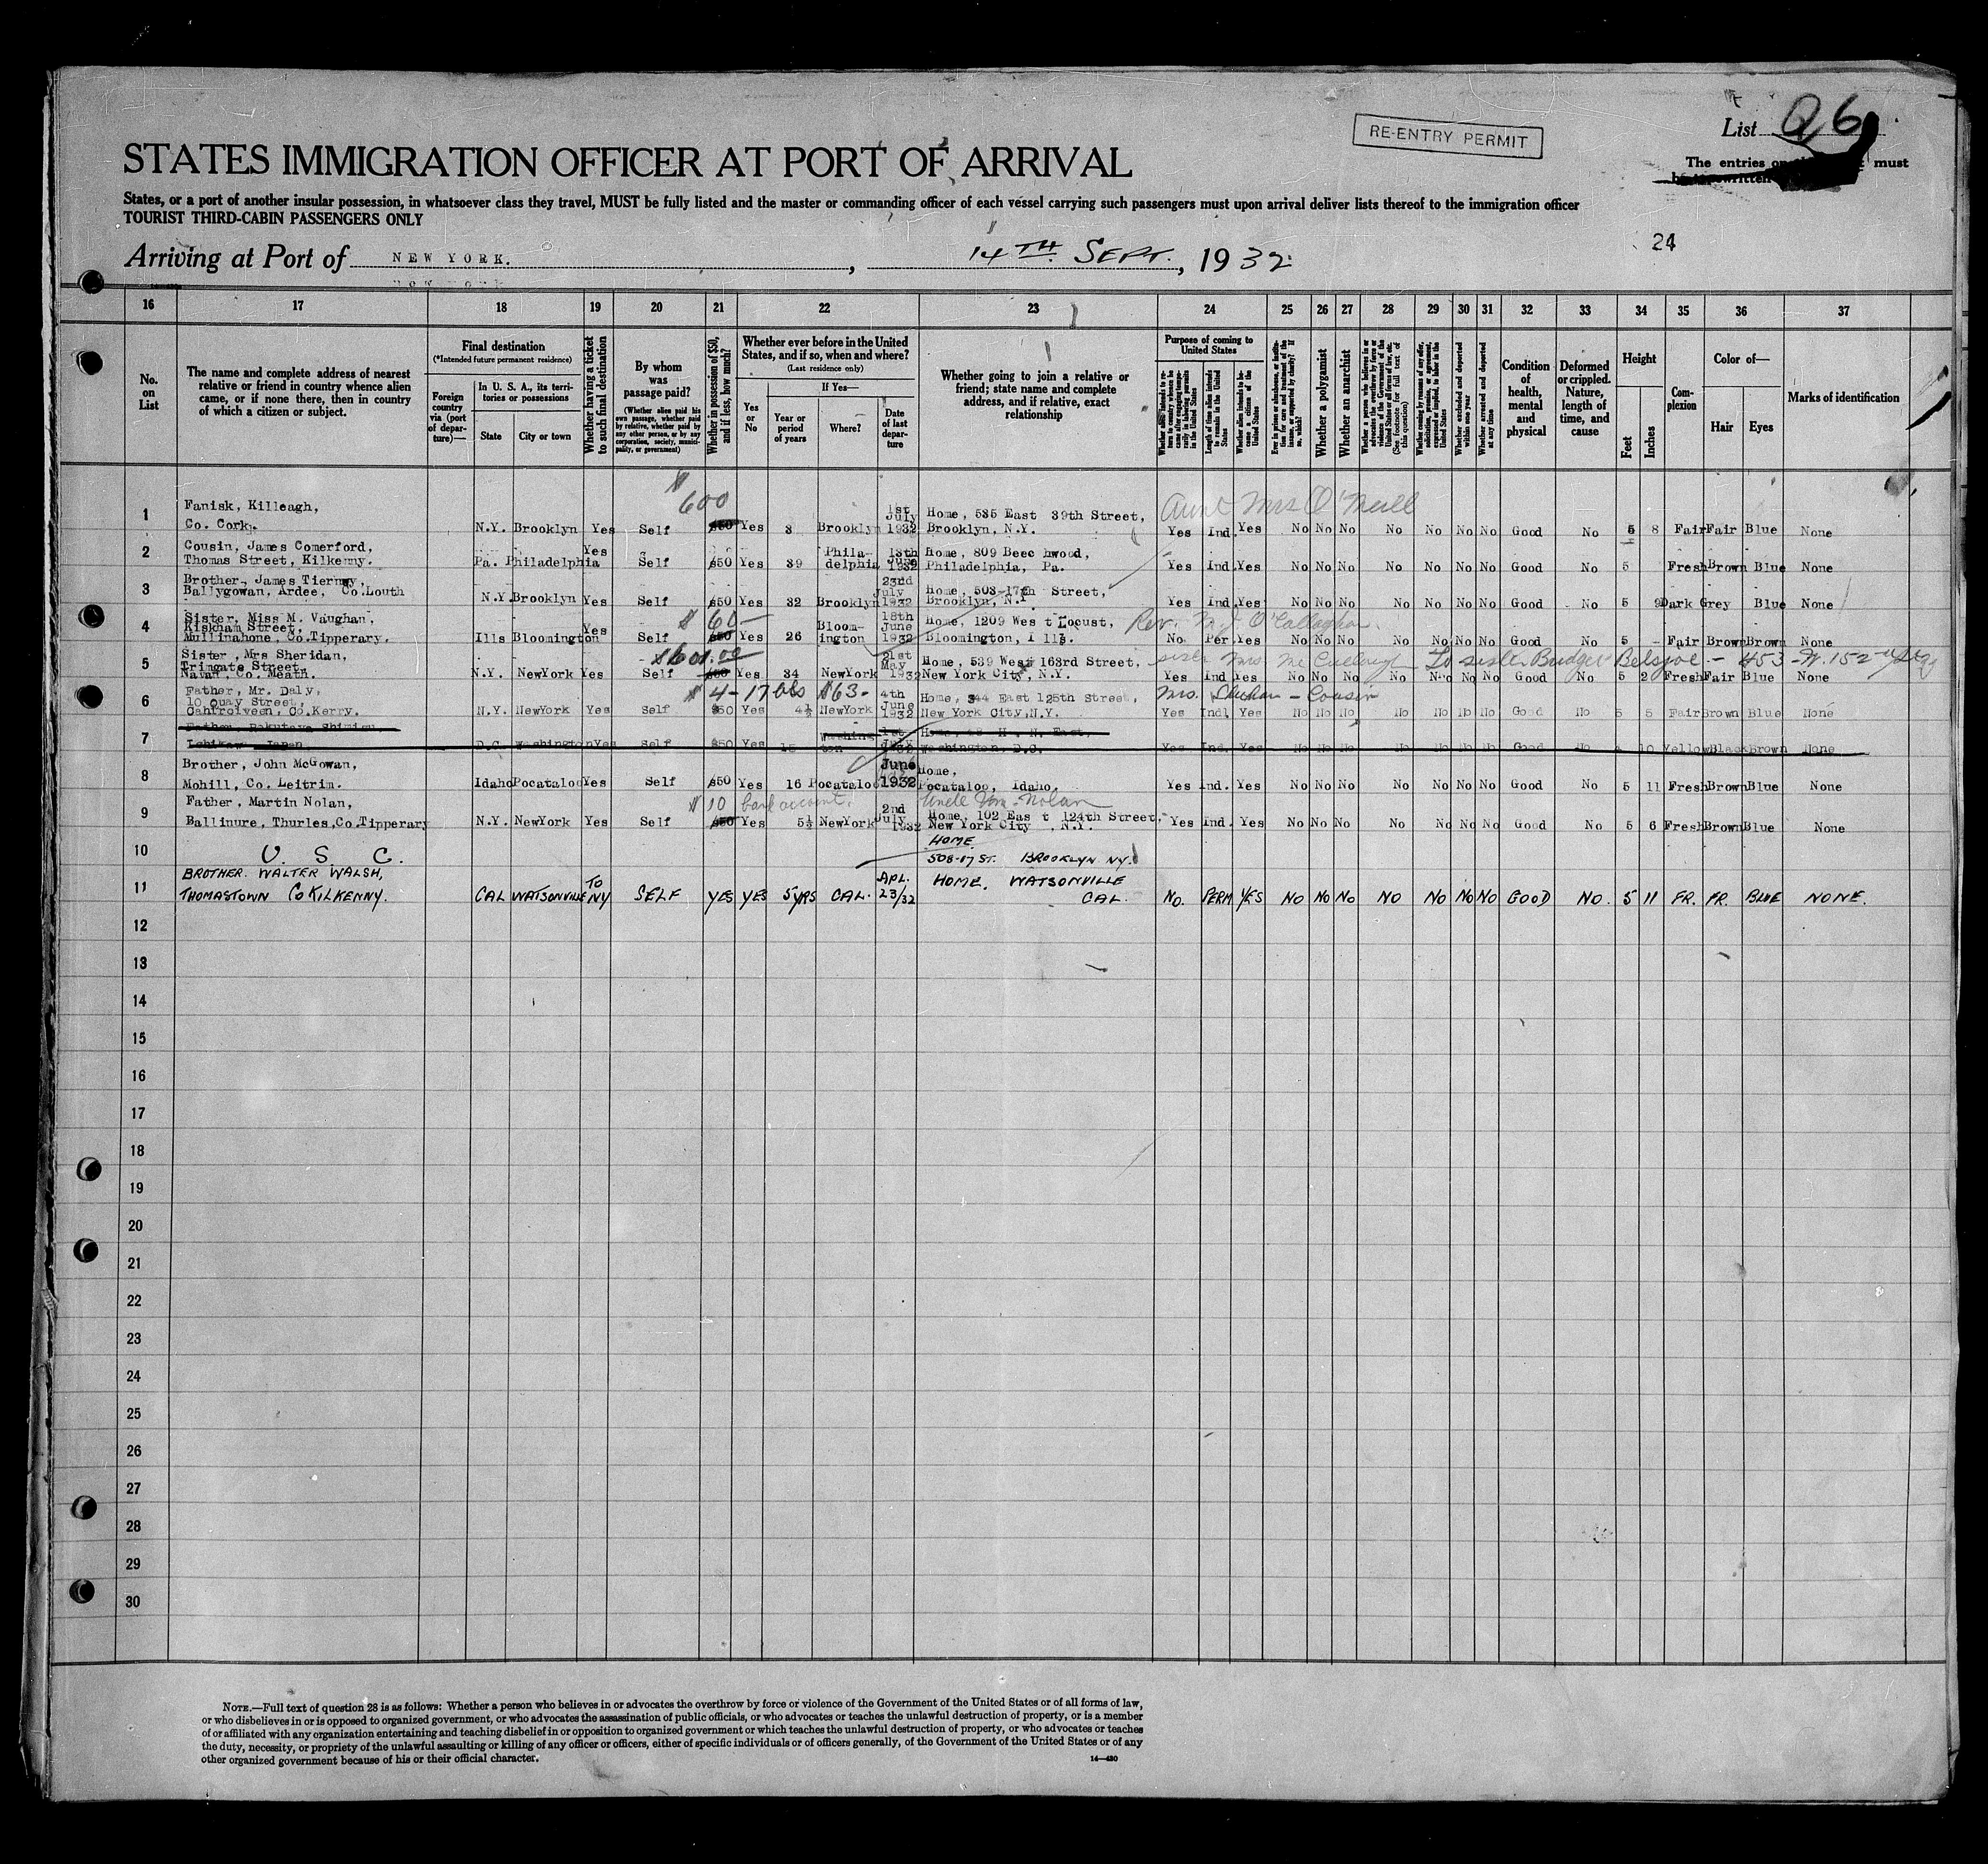 List Q 6
RE-ENTRY PERMIT
STATES IMMIGRATION OFFICER AT PORT OF ARRIVAL
The entries on must
States, or a port of another insular possession, in whatsoever class they travel, MUST be fully listed and the master or commanding officer of each vessel carrying such passengers must upon arrival deliver lists thereof to the immigration officer
TOURIST THIRD-CABIN PASSENGERS ONLY
24
Arriving at Port of NEW YORK. , 14TH SEPT. , 1932
16 17 18 19 20 21 22 23 24 25 26 27 28 29 30 31 32 33 34 35 36 37
No. on List
The name and complete address of nearest relative or friend in country whence alien came, or if none there, then in country of which a citizen or subject.
Final destination
(*Intended future permanent residence)
Foreign country via (port of departure)—
In U. S. A., its territories or possessions
State City or town
Whether having a ticket to such final destination
By whom was passage paid?
(Whether alien paid his own passage, whether paid by relative, whether paid by any other person, or by any corporation, society, municipality, or government)
Whether in possession of $50, and if less, how much?
Whether ever before in the United States, and if so, when and where?
(Last residence only)
Yes or No
If Yes—
Year or period of years
Where?
Date of last departure
Whether going to join a relative or friend; state name and complete address, and if relative, exact relationship
Purpose of coming to United States
Length of time alien intends to remain in the United States
Whether alien intends to become a citizen of the United States
Whether a polygamist
Whether an anarchist
Whether excluded and deported within one year
Whether arrested and deported at any time
Condition of health, mental and physical
Deformed or crippled. Nature, length of time, and cause
Height
Feet Inches
Complexion
Color of—
Hair Eyes
Marks of identification
$ 600 Aunt Mrs O'Neill
1 Fanisk, Killeagh, 1st July Home, 535 East 39th Street,
Co. Cork. N.Y. Brooklyn Yes Self $50 Yes 3 Brooklyn 1932 Brooklyn, N.Y. Yes Ind. Yes No No No No No No No Good No 5 8 Fair Fair Blue None
2 Cousin, James Comerford, Yes Phila- 13th Home, 809 Beechwood,
Thomas Street, Kilkenny. Pa. Philadelphia Self $50 Yes 39 delphia 1932 Philadelphia, Pa. Yes Ind. Yes No No No No No No No Good No 5 Fresh Brown Blue None
3 Brother, James Tierney, 23rd July Home, 503-17th Street,
Ballygowan, Ardee, Co.Louth N.Y. Brooklyn Yes Self $50 Yes 32 Brooklyn 1932 Brooklyn, N.Y Yes Ind. Yes No No No No No No No Good No 5 9 Dark Grey Blue None
4 Sister, Miss M. Vaughan, $ 60— 18th Rev. M. J. O'Callaghan
Kickham Street, Yes Bloom- June Home, 1209 West Locust,
Mullinahone, Co.Tipperary. Ills Bloomington Self $50 Yes 26 ington 1932 Bloomington, Ills. No Per. Yes No No No No No No No Good No 5 - Fair Brown Brown None
5 Sister, Mrs Sheridan, $600.00 21st sister Mrs. McCullough To sister Bridget - 453 - W. 152nd
Trimgate Street, May Home, 539 West 163rd Street,
Navan, Co. Meath. N.Y. NewYork Yes Self $50 Yes 34 NewYork 1932 New York City, N.Y. Yes Ind Yes No No No No No No No Good No 5 2 Fresh Fair Blue None
6 Father, Mr. Daly, $ 4- $63- 4th Mrs. Sheehan - Cousin
10 Quay Street, June Home, 344 East 125th Street,
Cahirciveen, Co.Kerry. N.Y. NewYork Yes Self $50 Yes 4½ NewYork 1932 New York City, N.Y. Yes Ind. Yes No No No No No No No Good No 5 5 Fair Brown Blue None
7 Father, Rokutaya Shimizu, Washing- 1st Home, 48 H. N. East,
Ishikawa Japan D.C. Washington Yes Self $50 Yes 15 ton Washington, D.C. Yes Ind. Yes No No No No No No No Good No 4 10 Yellow Black Brown None
8 Brother, John McGowan, June Home,
Mohill, Co. Leitrim. Idaho Pocataloo Yes Self $50 Yes 16 Pocataloo 1932 Pocataloo, Idaho. Yes Ind. Yes No No No No No No No Good No 5 11 Fresh Brown Blue None
9 Father, Martin Nolan, $ 10 bank account. 2nd July Uncle Wm. Nolan
Home, 102 East 124th Street,
Ballinure, Thurles, Co.Tipperary N.Y. NewYork Yes Self $50 Yes 5½ NewYork 1932 New York City, N.Y. Yes Ind. Yes No No No No No No No Good No 5 6 Fresh Brown Blue None
10 U. S. C. HOME.
508-17 ST. BROOKLYN NY.
11 BROTHER. WALTER WALSH, TO APL. HOME. WATSONVILLE
THOMASTOWN CO KILKENNY. CAL WATSONVILLE NY SELF YES YES 5 YRS CAL. 23/32 CAL. NO. PERM YES NO NO NO NO NO NO NO GOOD NO. 5 11 FR. FR. BLUE NONE.
12
13
14
15
16
17
18
19
20
21
22
23
24
25
26
27
28
29
30
NOTE.—Full text of question 28 is as follows: Whether a person who believes in or advocates the overthrow by force or violence of the Government of the United States or of all forms of law,
or who disbelieves in or is opposed to organized government, or who advocates the assassination of public officials, or who advocates or teaches the unlawful destruction of property, or is a member
of or affiliated with any organization entertaining and teaching disbelief in or opposition to organized government or which teaches the unlawful destruction of property, or who advocates or teaches
the duty, necessity, or propriety of the unlawful assaulting or killing of any officer or officers, either of specific individuals or of officers generally, of the Government of the United States or of any
other organized government because of his or their official character. 14—480